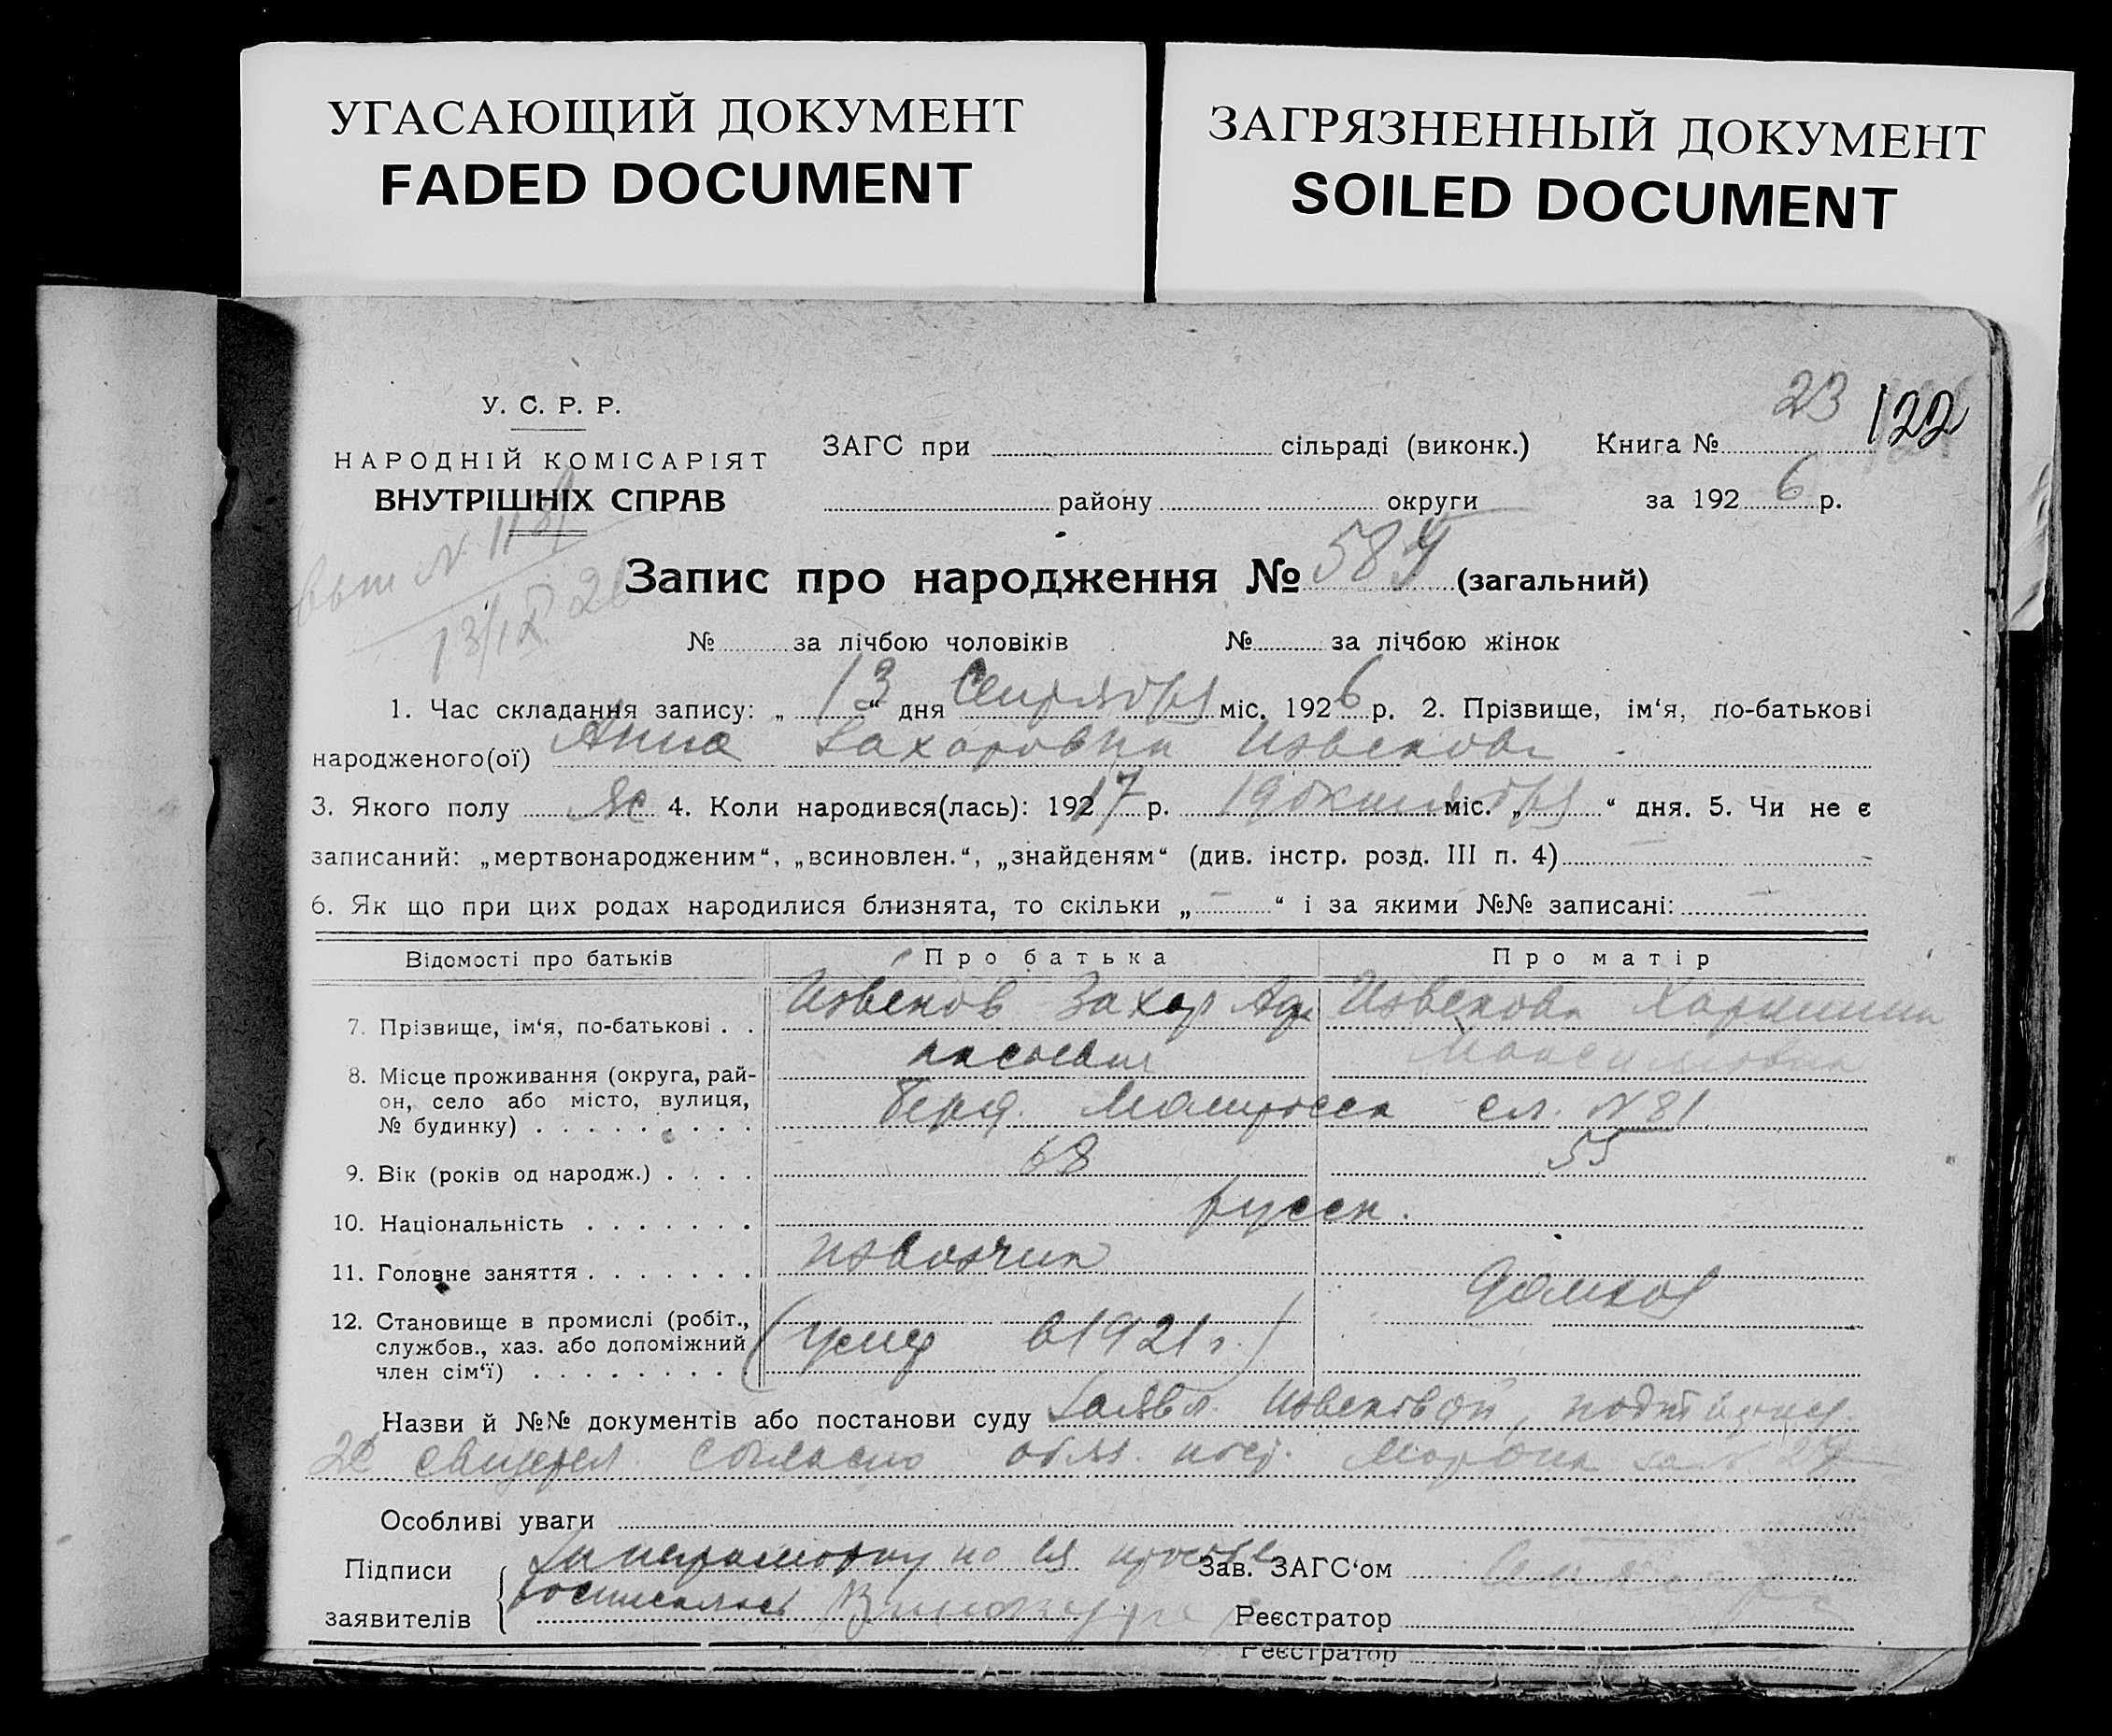 УГАСАЮЩИЙ ДОКУМЕНТ
FADED DOCUMENT
ЗАГРЯЗНЕННЫЙ ДОКУМЕНТ
SOILED DOCUMENT
23 122
У. С. Р. Р.
НАРОДНІЙ КОМІСАРІЯТ
ВНУТРІШНІХ СПРАВ
ЗАГС при сільраді (виконк.) Книга №
району округи за 1926 р.
13/IX 26
Запис про народження № 589 (загальний)
№ за лічбою чоловіків № за лічбою жінок
1. Час складання запису: „13“ дня Сентября міс. 1926 р. 2. Прізвище, ім‘я, по-батькові
народженого(ої) Анна Захаровна Извекова
3. Якого полу ж 4. Коли народився(лась): 1917 р. 19 октября міс. „ “ дня. 5. Чи не є
записаний: „мертвонародженим“, „всиновлен.“, „знайденям“ (див. інстр. розд. III п. 4) —
6. Як що при цих родах народилися близнята, то скільки „—“ і за якими №№ записані: —
Відомості про батьків Про батька Про матір
7. Прізвище, ім‘я, по-батькові . . Извеков Захар Извекова
Максимовна
8. Місце проживання (округа, рай-
он, село або місто, вулиця,
№ будинку) . . . . . . . . . сл. № 81
9. Вік (років од народж.) . . . . 68 55
10. Національність . . . . . . . русск.
11. Головне заняття . . . . . . . извозчик домхоз
12. Становище в промислі (робіт.,
службов., хаз. або допоміжний
член сім‘ї) . . . . . . . . . (умер в 1921 г.)
Назви й №№ документів або постанови суду Заявл. Извековой,
2х свидетел. согласно обяз. пост.
Особливі уваги
Підписи
заявителів
за неграмотну по ея просьбе
росписалась
Зав. ЗАГС‘ом
Реєстратор
Реєстратор